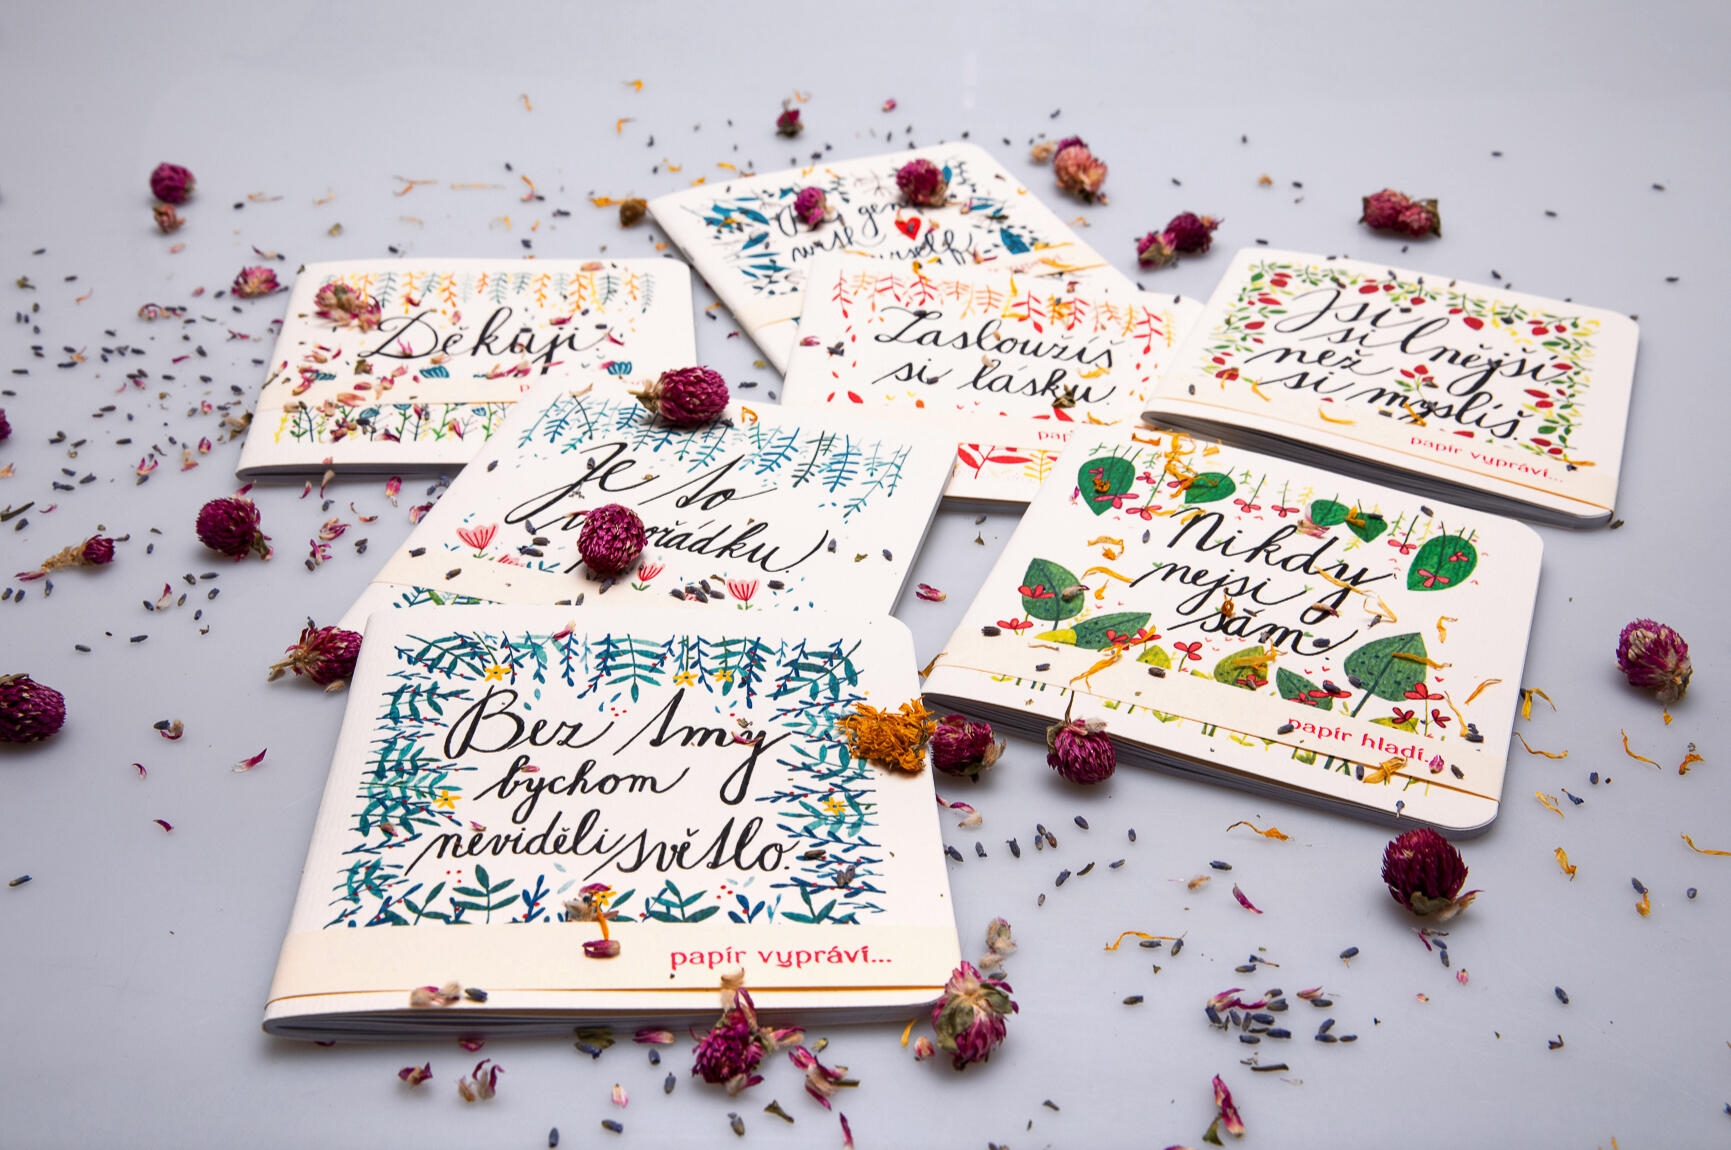 with
Děkuji
Zasloužíš
si lásku
pap
Jsi
silnější
než
si myslíš
papír vypráví...
Je to
Nikdy
nejsi
sám.
papír hladí...
Bez tmy
bychom
neviděli světlo.
papír vypráví...